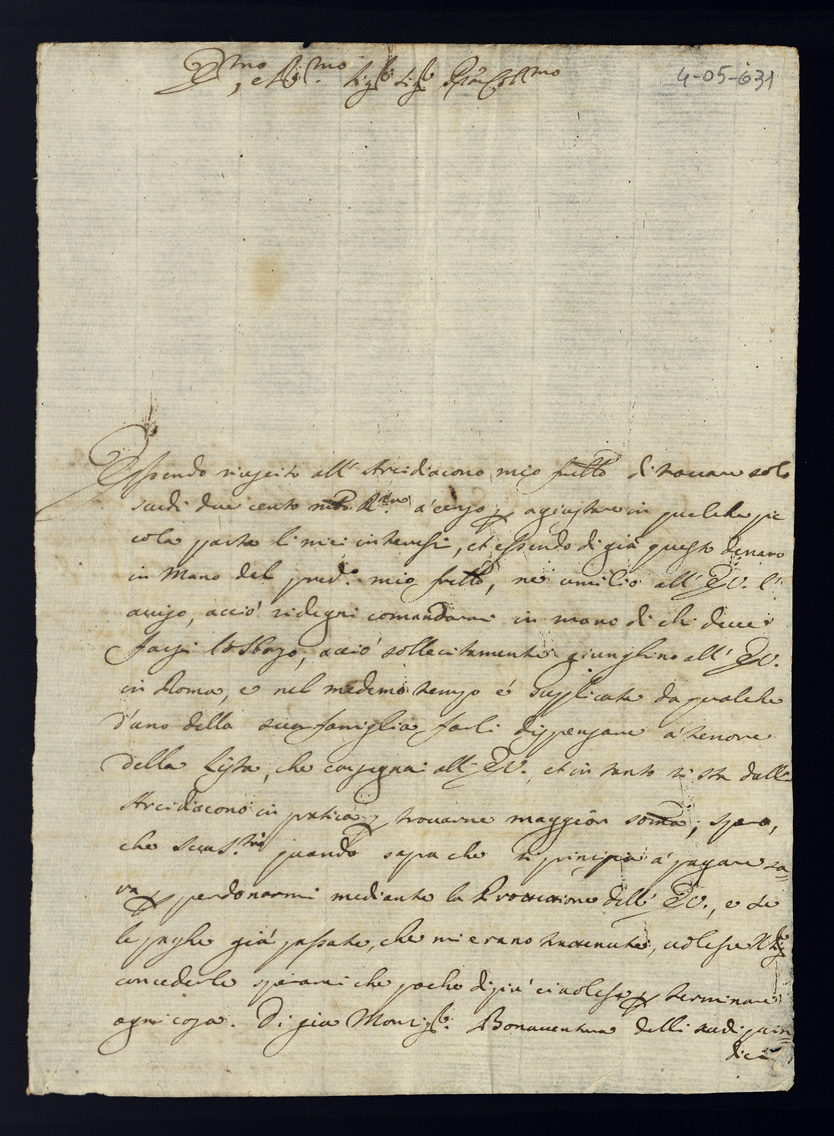 Em.mo, e Re.mo Sig.r Sig.r Pron Coll.mo
4-05-631
Essendo riuscito all' Arcidiacono mio fratello di trovare solo
scudi due cento a' censo p agiustare in qualche pic
cola parte li miei interessi, et essendo di già questo denaro
in mano del pred.o mio fratello, ne umilio all' E.V. l'
aviso, acciò si degni comandarmi in mano di chi deve
farsi lo sborzo, acciò sollecitamente giunghino all' E.V.
in Roma, e nel medemo tempo è supplicata da qualche
d'uno della sua famiglia farli dispensare a' tenore
della Lista, che consegnai all' E.V., et in tanto si sta dall'
Arcidiacono in pratica p trovarne maggior soma, spero,
che Sua S.tà quando sapia che si principia à pagare sa
rà p perdonarmi mediante la Protezione dell' E.V., e se
le paghe già passate, che mi erano trattenute, volesse
concederle sperarei che poche di più ci volesse p terminare
ogni cosa. Di già Monsig.r Bonaventura delli scudi quin
dici